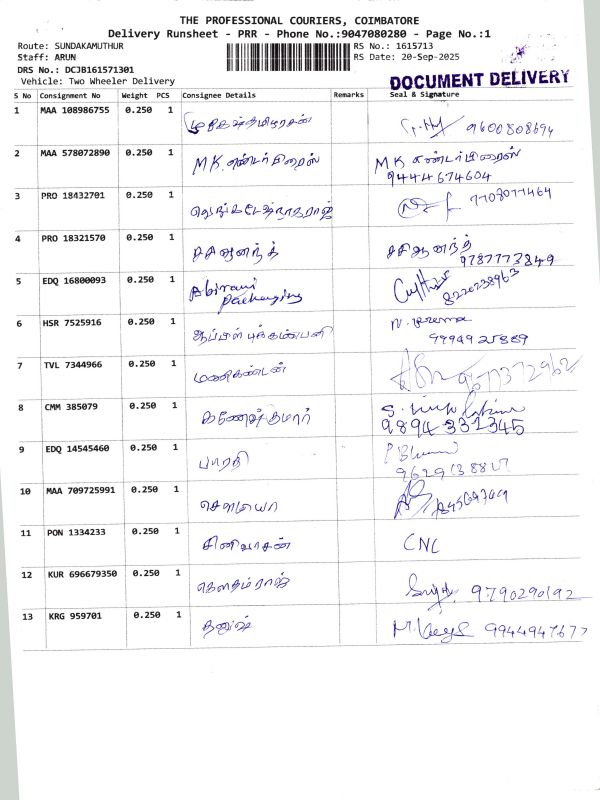 THE PROFESSIONAL COURIERS, COIMBATORE
Delivery Runsheet - PRR - Phone No.:9047080280 - Page No.:1
Route: SUNDAKAMUTHUR RS No.: 1615713
Staff: ARUN RS Date: 20-Sep-2025
DRS No.: DCJB161571301
Vehicle: Two Wheeler Delivery
DOCUMENT DELIVERY
S No Consignment No Weight PCS Consignee Details Remarks Seal & Signature
1 MAA 108986755 0.250 1 9600808694
2 MAA 578072890 0.250 1 MK. எண்டர்பிரைஸ் MK எண்டர்பிரைஸ்
9444674604
3 PRO 18432701 0.250 1 வெங்கடேஷ்நாகராஜ் 7708077464
4 PRO 18321570 0.250 1
9787773849
5 EDQ 16800093 0.250 1 Abirami
Packaging 8220238963
6 HSR 7525916 0.250 1 N. Prema
7 TVL 7344966 0.250 1 மணிகண்டன்
8 CMM 385079 0.250 1 கணேஷ்குமார்
9894 331345
9 EDQ 14545460 0.250 1 பாரதி
10 MAA 709725991 0.250 1 சௌமியா
11 PON 1334233 0.250 1 சினிவாசன் CNC
12 KUR 696679350 0.250 1 கௌதம்ராஜ் 9790290192
13 KRG 959701 0.250 1 தனுஷ் 9944947677